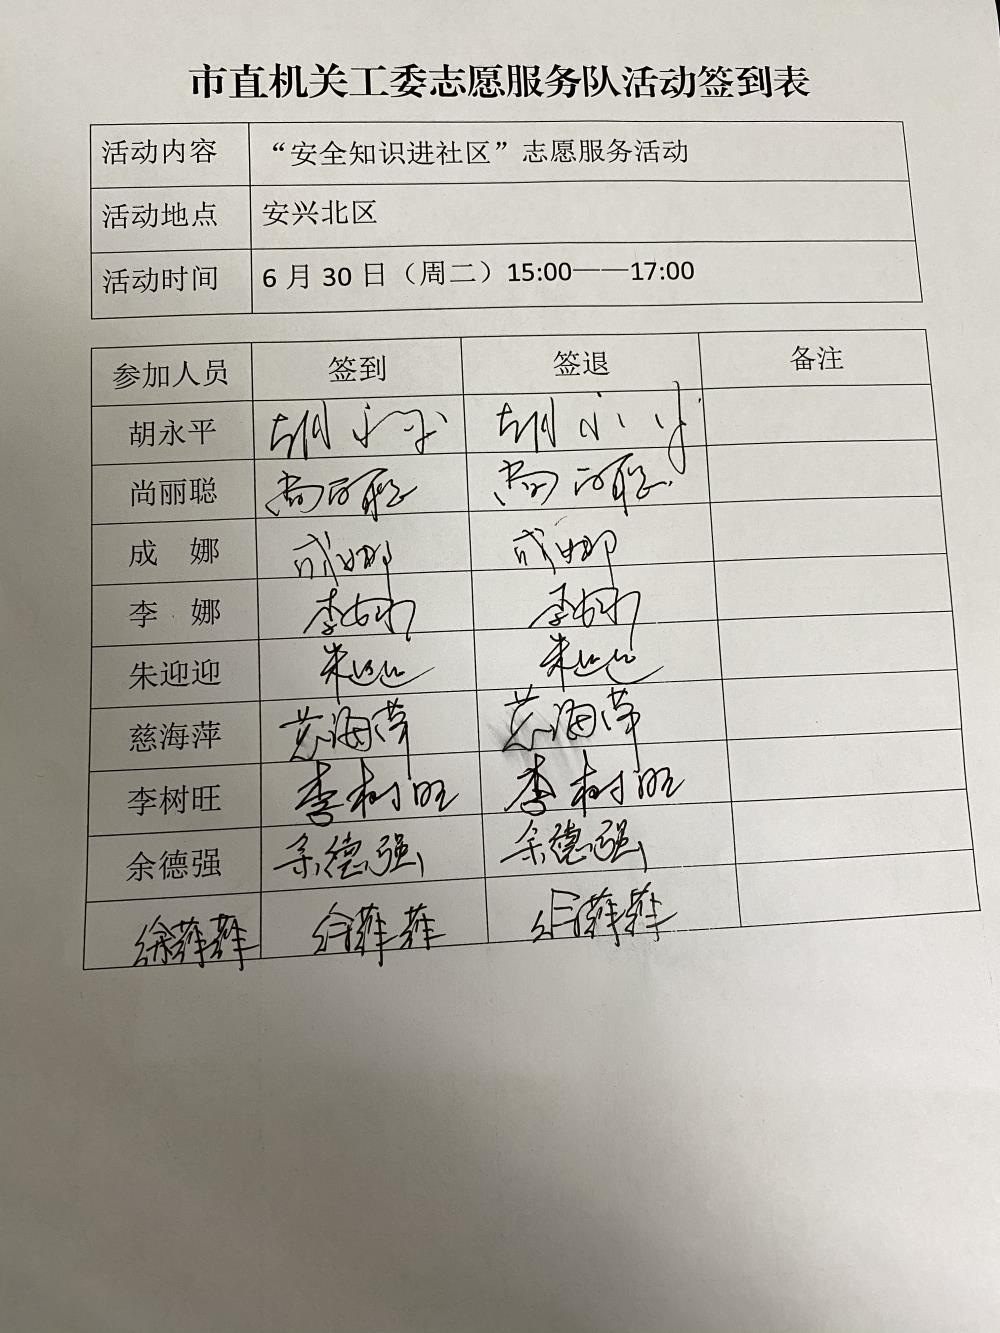 市直机关工委志愿服务队活动签到表
活动内容 “安全知识进社区”志愿服务活动
活动地点 安兴北区
活动时间 6月30日（周二）15:00——17:00
参加人员 签到 签退 备注
胡永平 胡永平 胡永平
尚丽聪 尚丽聪 尚丽聪
成 娜 成娜 成娜
李 娜 李娜 李娜
朱迎迎 朱迎迎 朱迎迎
慈海萍 慈海萍 慈海萍
李树旺 李树旺 李树旺
余德强 余德强 余德强
徐 徐 徐